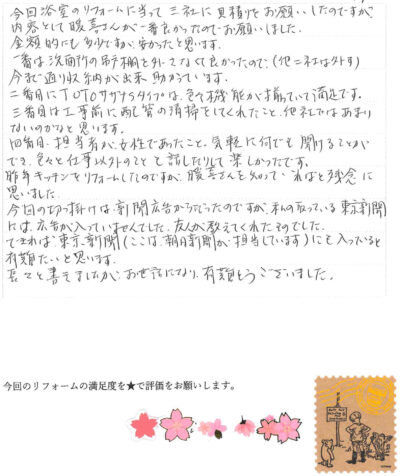 今回浴室のリフォームに当って三社に見積りをお願いしたのですが、
内容として暖喜さんが一番良かったのでお願いしました。
金額的にも多少ですが、安かったと思います。
一番は洗面所の吊戸棚を外さなくて良かったので、(他二社は外す)
今まで通り収納が出来助かっています。
二番目にTOTOサザナSタイプは、色々機能が揃っていて満足です。
三番目は工事前に配管の清掃をしてくれたこと、他社ではあまり
ないのかなと思います。
四番目、担当者が女性であったこと。気軽に何でも聞けることが
でき、色々と仕事以外のことと話したりして楽しかったです。
昨年キッチンをリフォームしたのですが、暖喜さんを知っていればと残念に
思いました。
今回の切っ掛けは、新聞広告からだったのですが、私の取っている東京新聞
には、広告が入っていませんでした。友人が教えてくれたものでした。
できれば東京新聞(ここは、朝日新聞が担当しています)にも入っていると
有難たいと思います。
長々と書きましたが、お世話になり、有難とうございました。
今回のリフォームの満足度を★で評価をお願いします。